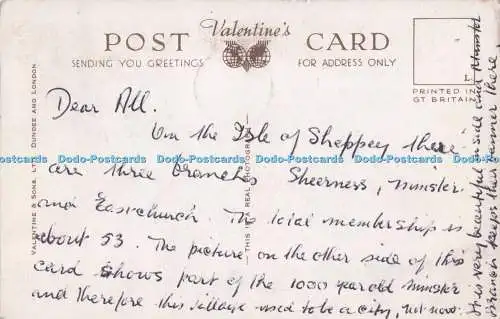 Valentine's
POST CARD
SENDING YOU GREETINGS FOR ADDRESS ONLY
PRINTED IN
GT BRITAIN
VALENTINE & SONS, LTD. DUNDEE AND LONDON
THIS IS A REAL PHOTOGRAPH
Dear All.
On the Isle of Sheppey there
are three branches Sheerness, minster
and Eastchurch. The total membership is
about 53. The picture on the other side of this
card shows part of the 1000 year old minster
and therefore this village used to be a city, not now.
It is very beautiful inside and Minster
Branch keeps their banner there
Dodo-Postcards Dodo-Postcards Dodo-Postcards Dodo-Postcards Dodo-Postcards Dodo-Postcards